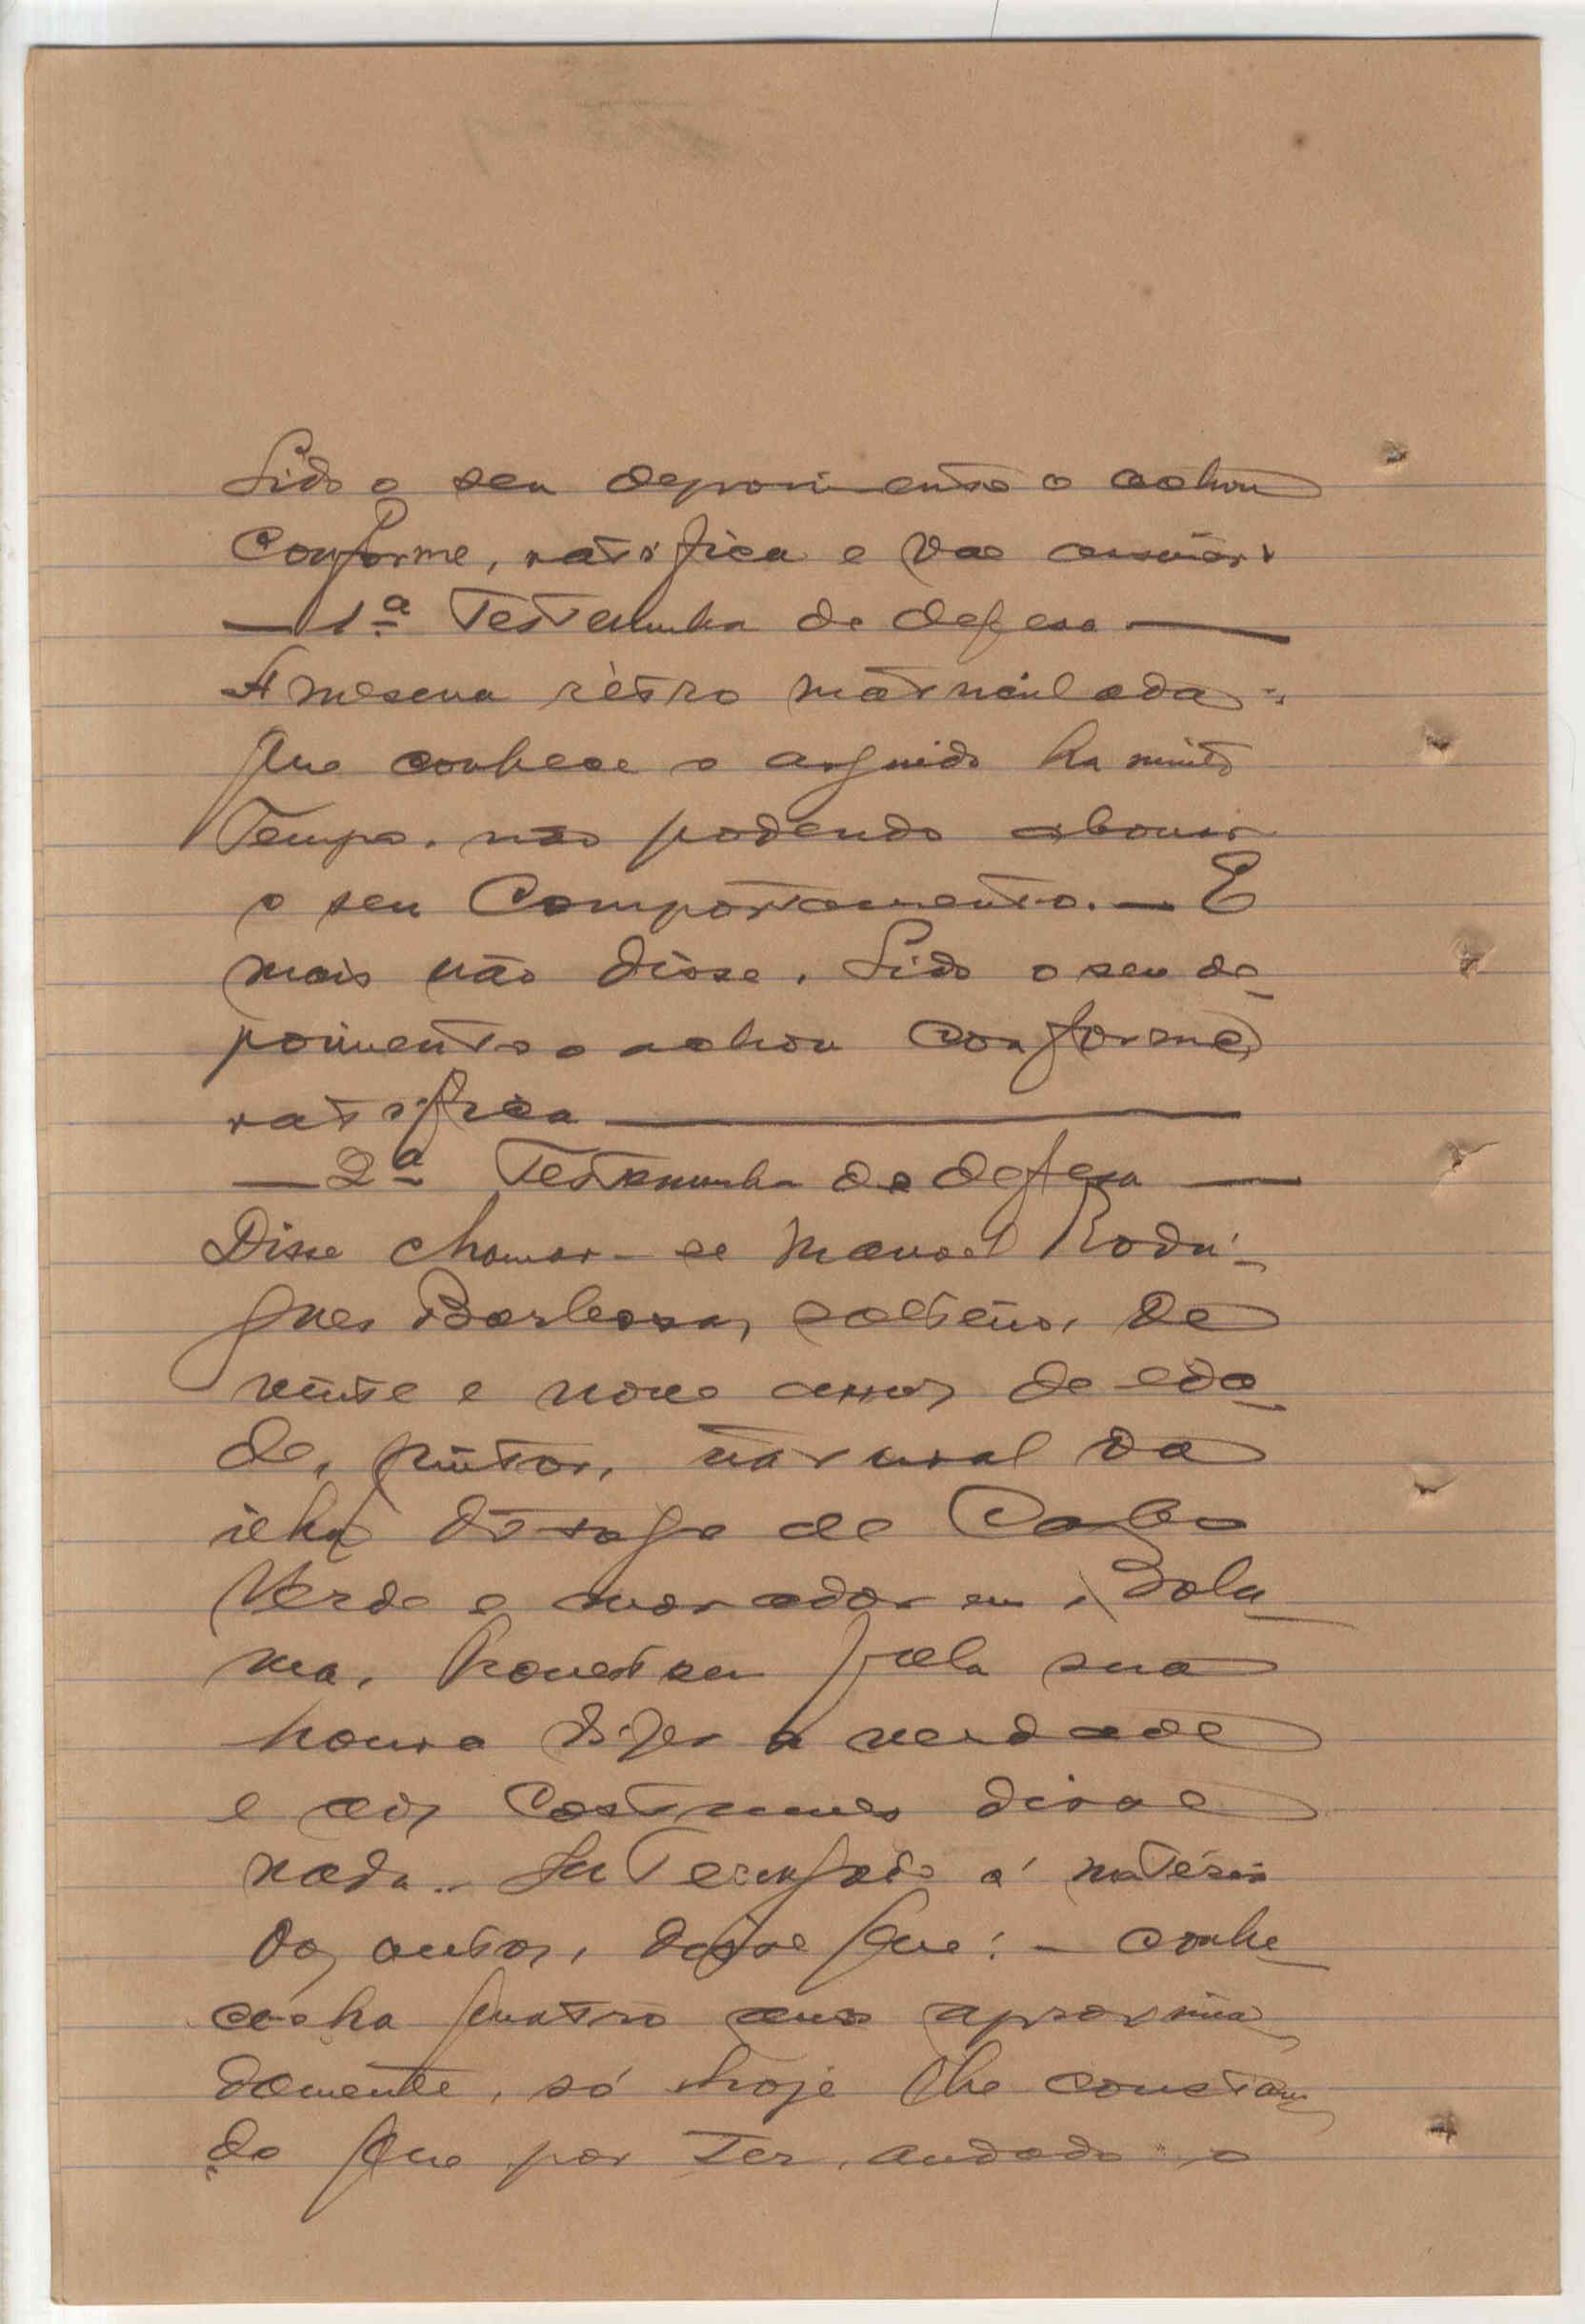 Lido o seu depoimento o achou
conforme, ratifica e vae assinar.
— 1ª Testemunha de defesa —
A mesma rétro matriculada:
que conhece o arguido ha muito
tempo, não podendo abonar
o seu comportamento. — E
mais não disse. Lido o seu de-
poimento o achou conforme,
ratifica —
— 2ª Testemunha de defesa —
Disse chamar-se Manoel Rodri-
gues Barbosa, solteiro, de
vinte e nove anos de eda-
de, pintor, natural da
ilha do Fogo de Cabo
Verde e morador em Bola-
ma, pela sua
honra dizer a verdade
e aos costumes disse
nada. Interrogado á matéria
dos autos, disse que: — conhe-
ce-o ha quatro anos aproxima-
damente, só hoje lhe constan-
do que por ter andado o